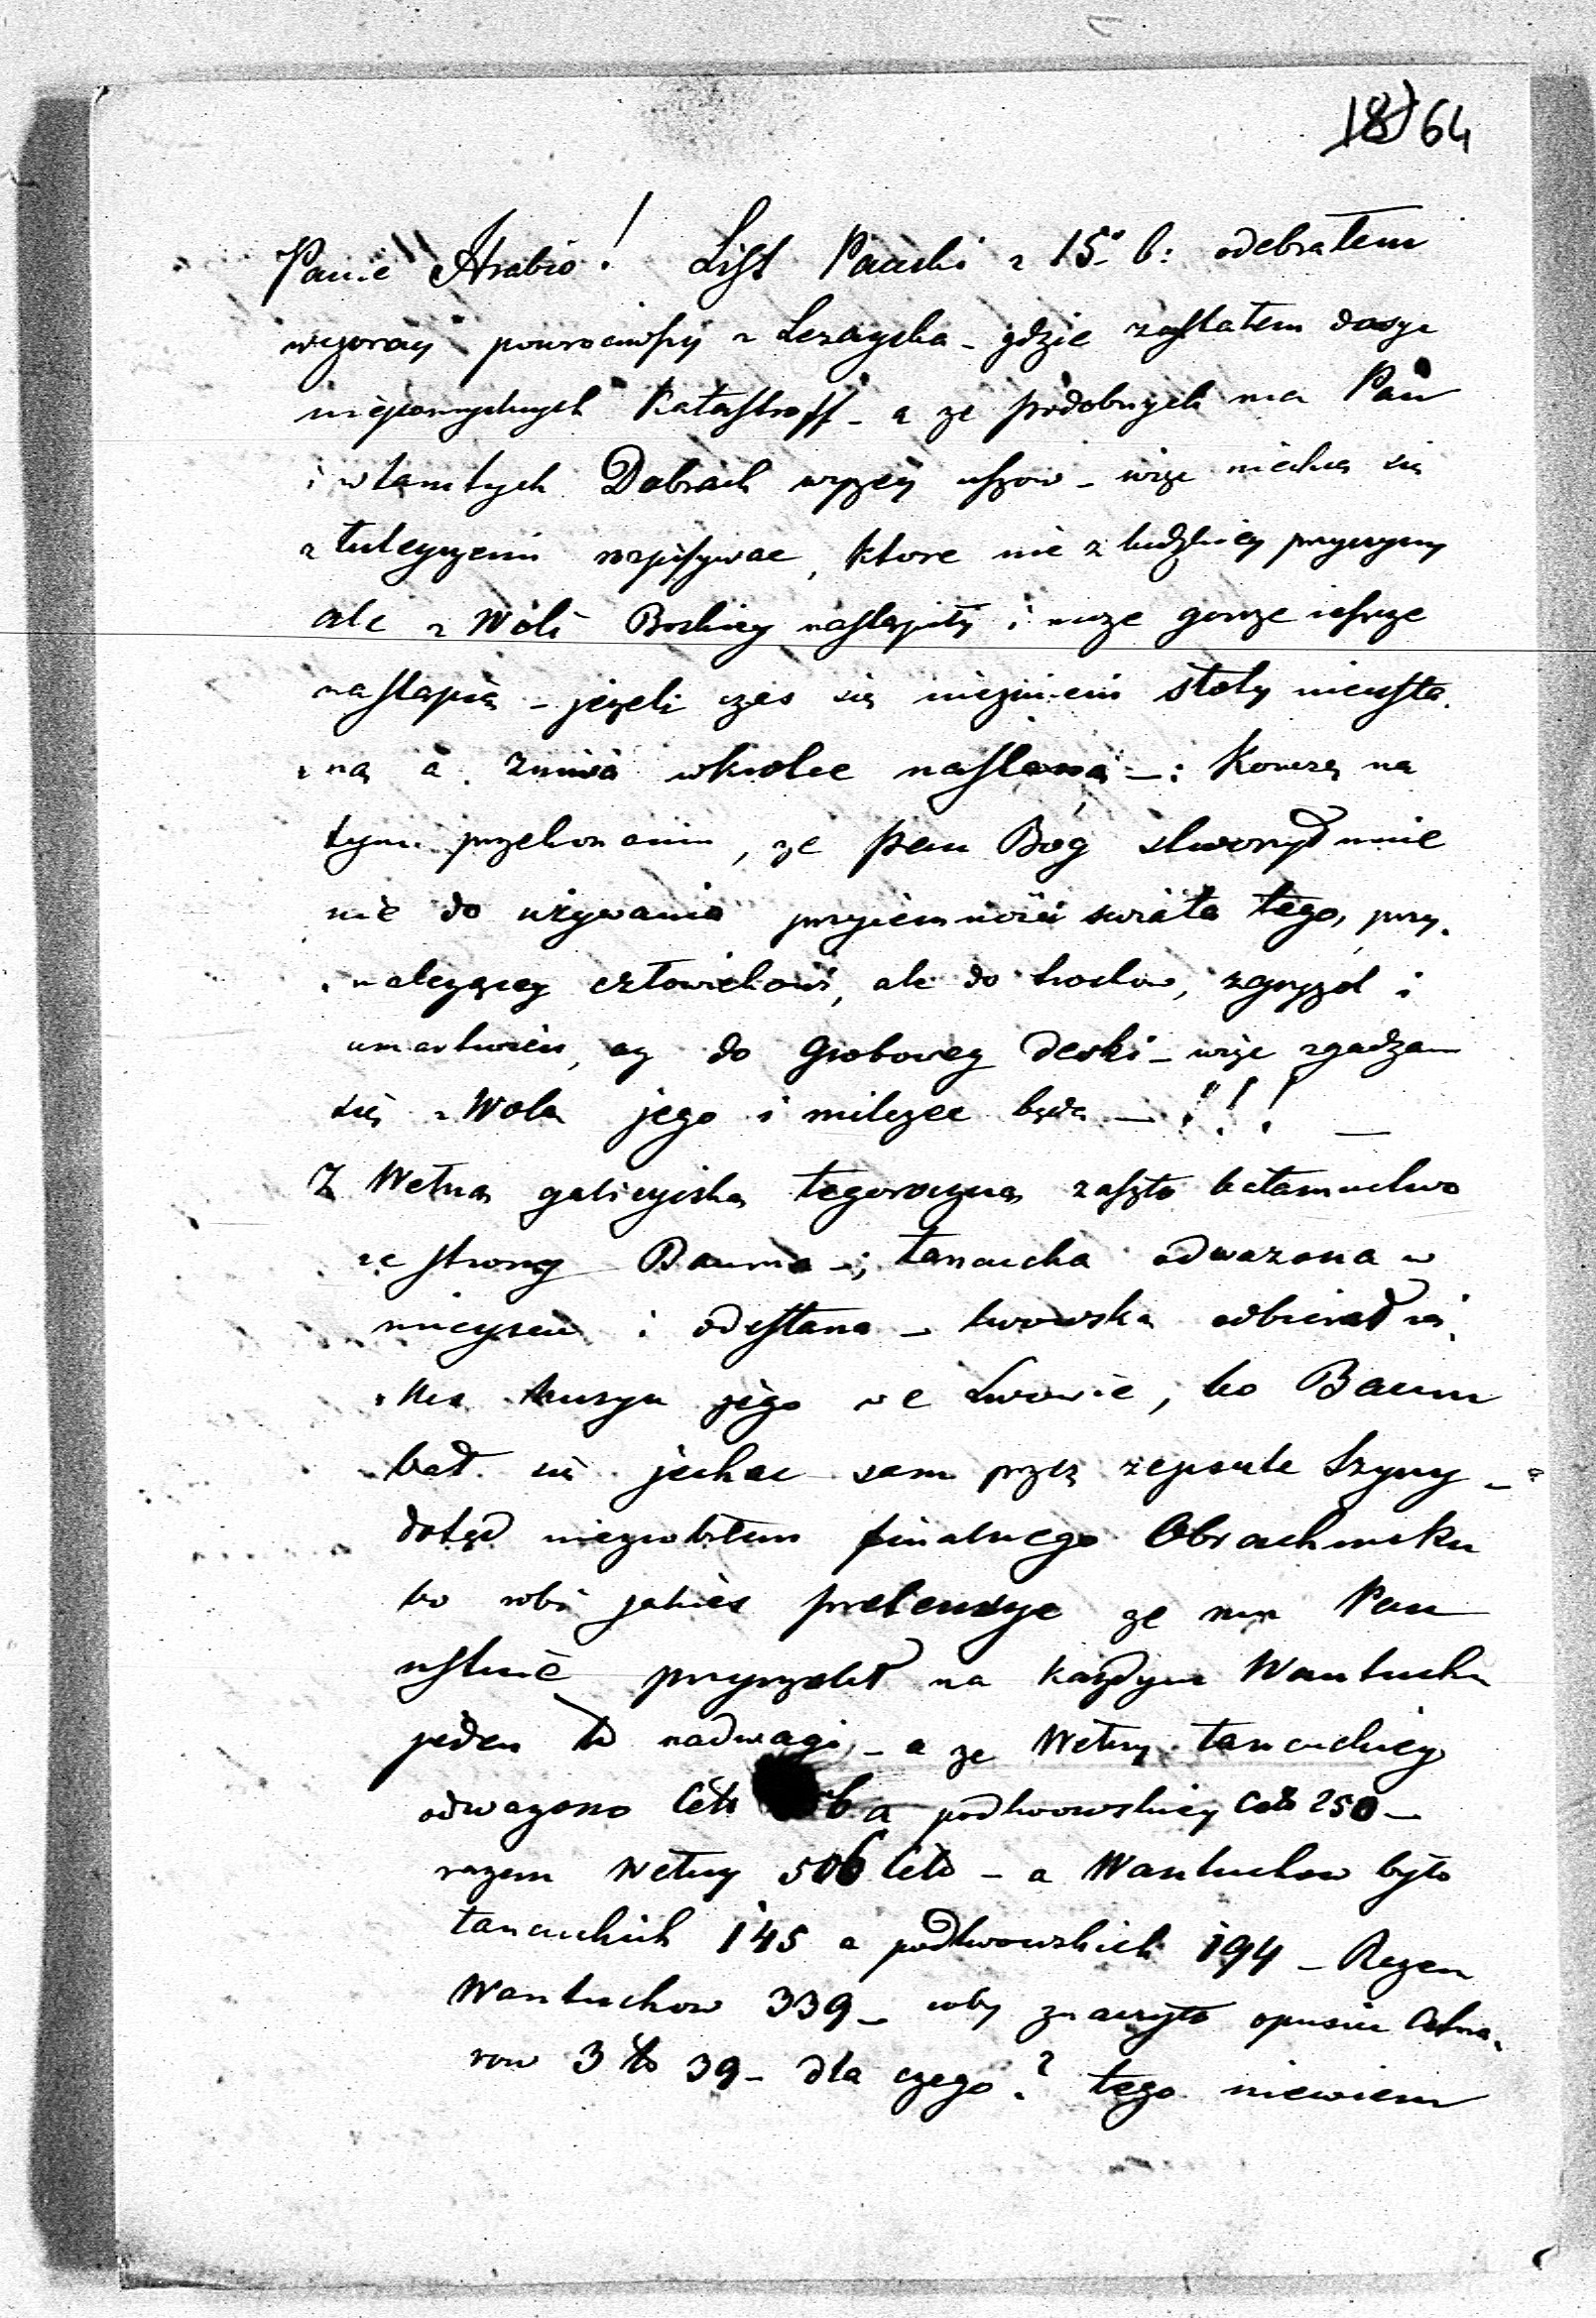 18 64
Panie Hrabio! List Pański z 15. b: odebrałem
wczoray powrociwszy z Lezayska - gdzie zastałem dosyc
niepomyslnych Katastroff - a ze podobnych ma Pan
i w tamtych Dobrach wyzey uszow - więc niechcę się
z tuteyszemi rozpisywac, ktore nie z ludzkiey przyczyny
ale z Woli Boskiey nastąpiły i moze gorsze ieszcze
nastąpią - jezeli czas się niezmieni słoty nieusta-
-ną a zniwa wkrotce nastaną - : Konczę na
tym przekonaniu, ze pan Bog stworzył mnie
nie do używania przyiemności swiata tego, przy-
-nalezącey człowiekowi, ale do trosków, zgryzot i
umartwien, az do Grobowey deski - więc zgadzam
się z Wolą jego i milczec będę - !!! -
Z Wełną galicyiską tegoroczną zaszło bałamuctwo
ze strony Bauma -; łancucka odwazona w
mieyscu i odesłana - lwowską odbierał
kuzyn jego we Lwowie, bo Baum
bał się jechac sam przez zepsute Szyny -
dotąd niezrobiłem finalnego Obrachunku
bo robi jakies pretensye ze mu Pan
ustnie przyrzekł na kazdym Wantuchu
jeden ℔ nadwagi, - a ze Wełny łancuckiey
odwazono Cet a podlwowskiey Cet 250 -
razem Wełny 506 Cet - a Wantuchow było
łancuckich 145 a podlwowskich 194 - Razem
Wantuchow 339 - coby znaczyło opusciu Cetna-
row 3 ℔ 39 - dla czego? tego niewiem